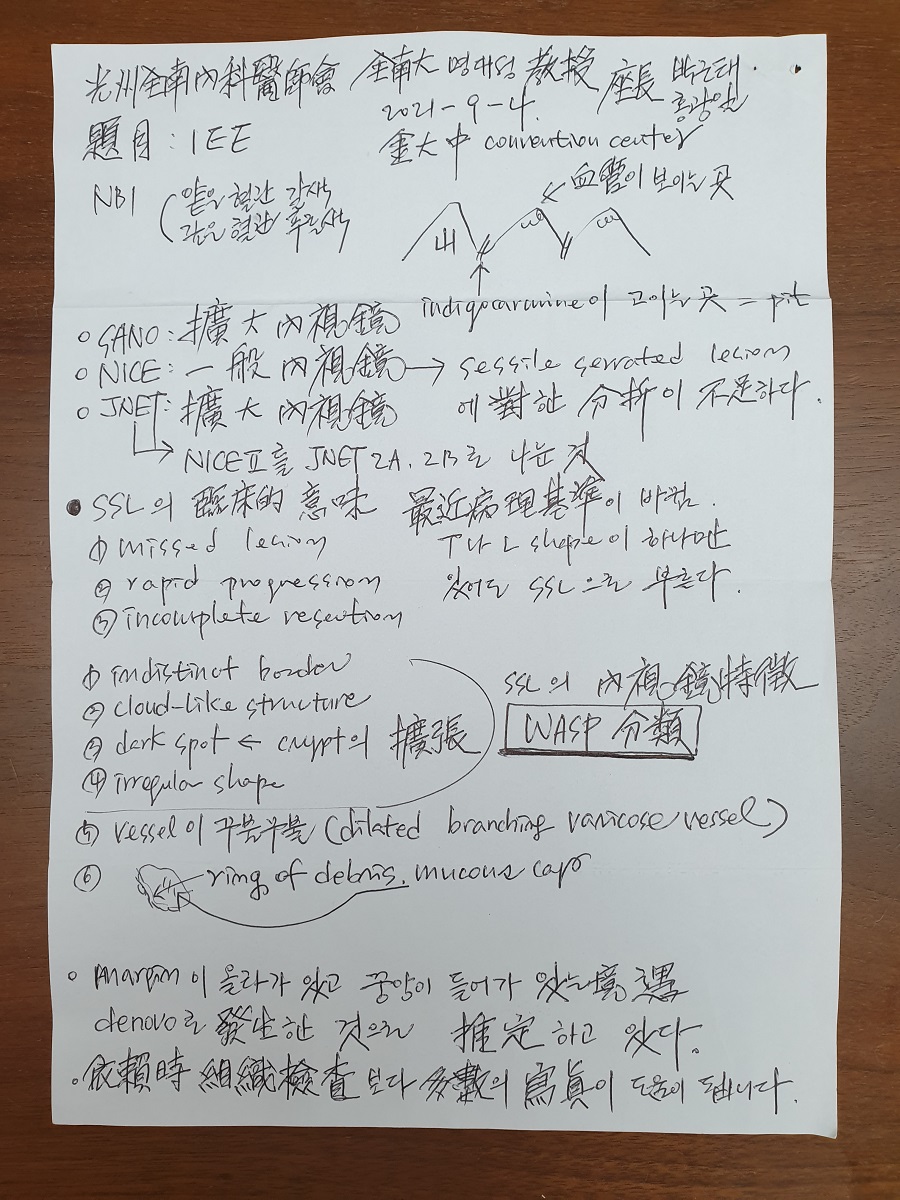 光州全南內科醫師會 全南大 명대성 敎授 座長 박근태.
홍광일
2021-9-4.
題目: IEE 金大中 convention center
NBI (얕은 혈관 갈색
깊은 혈관 푸른색
血管이 보이는 곳
山
indigocarmine이 고이는 곳 = pit
○ SANO: 擴大 內視鏡
○ NICE: 一般 內視鏡 → sessile serrated lesion
에 對한 分析이 不足하다.
○ JNET: 擴大 內視鏡
NICE Ⅱ를 JNET 2A, 2B로 나눈 것
● SSL의 臨床的 意味 最近 病理基準이 바뀜.
① missed lesion T나 L shape이 하나만
② rapid progression 있어도 SSL으로 부른다.
③ incomplete resection
① indistinct border
SSL의 內視鏡特徵
② cloud-like structure
WASP 分類
③ dark spot ← crypt의 擴張
④ irregular shape
⑤ vessel이 꾸불꾸불 (dilated branching varicose vessel)
⑥ ring of debris. mucous cap
○ margin이 올라가 있고 중앙이 들어가 있는 境遇
denovo로 發生한 것으로 推定하고 있다.
○ 依賴時 組織檢査보다 多數의 寫眞이 도움이 됩니다.